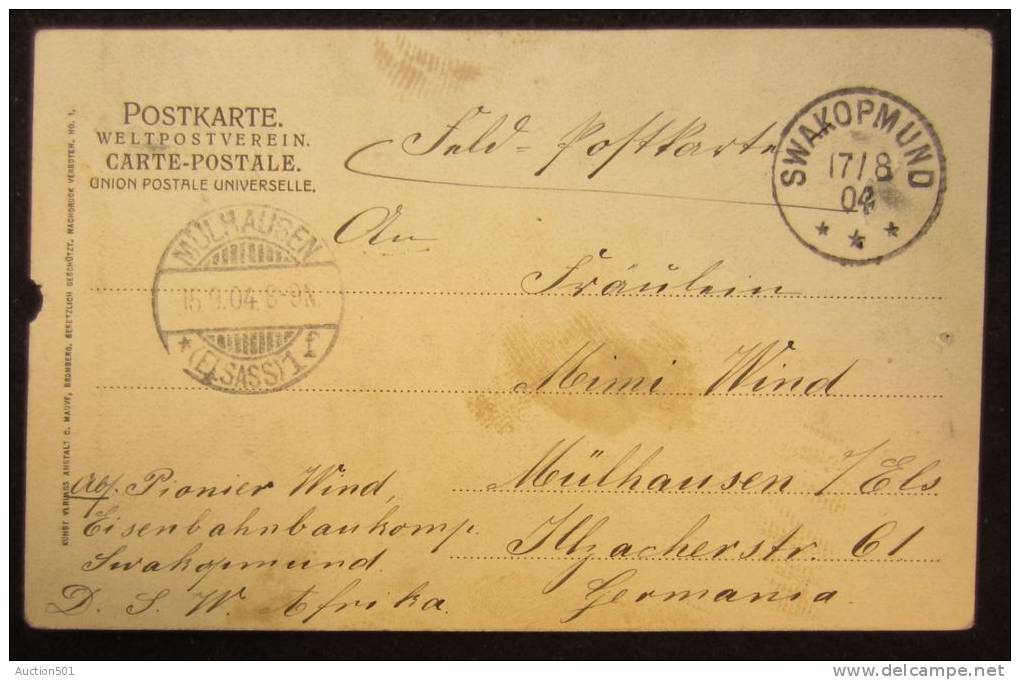 POSTKARTE.
WELTPOSTVEREIN.
CARTE-POSTALE.
UNION POSTALE UNIVERSELLE.
Feld-Postkarte
SWAKOPMUND
17/8
04
MÜLHAUSEN
15.9.04. 8-9N.
(ELSASS) 1
An
Fräulein
Mimi Wind
Mülhausen /Els
Illzacherstr. 61
Germania
Abs. Pionier Wind,
Eisenbahnbaukomp.
Swakopmund
D. S. W. Afrika.
KUNST VERLAGS ANSTALT C. MAUVE, BROMBERG. GESETZLICH GESCHÜTZT. NACHDRUCK VERBOTEN. NO. 1.
Auction501
www.delcampe.net